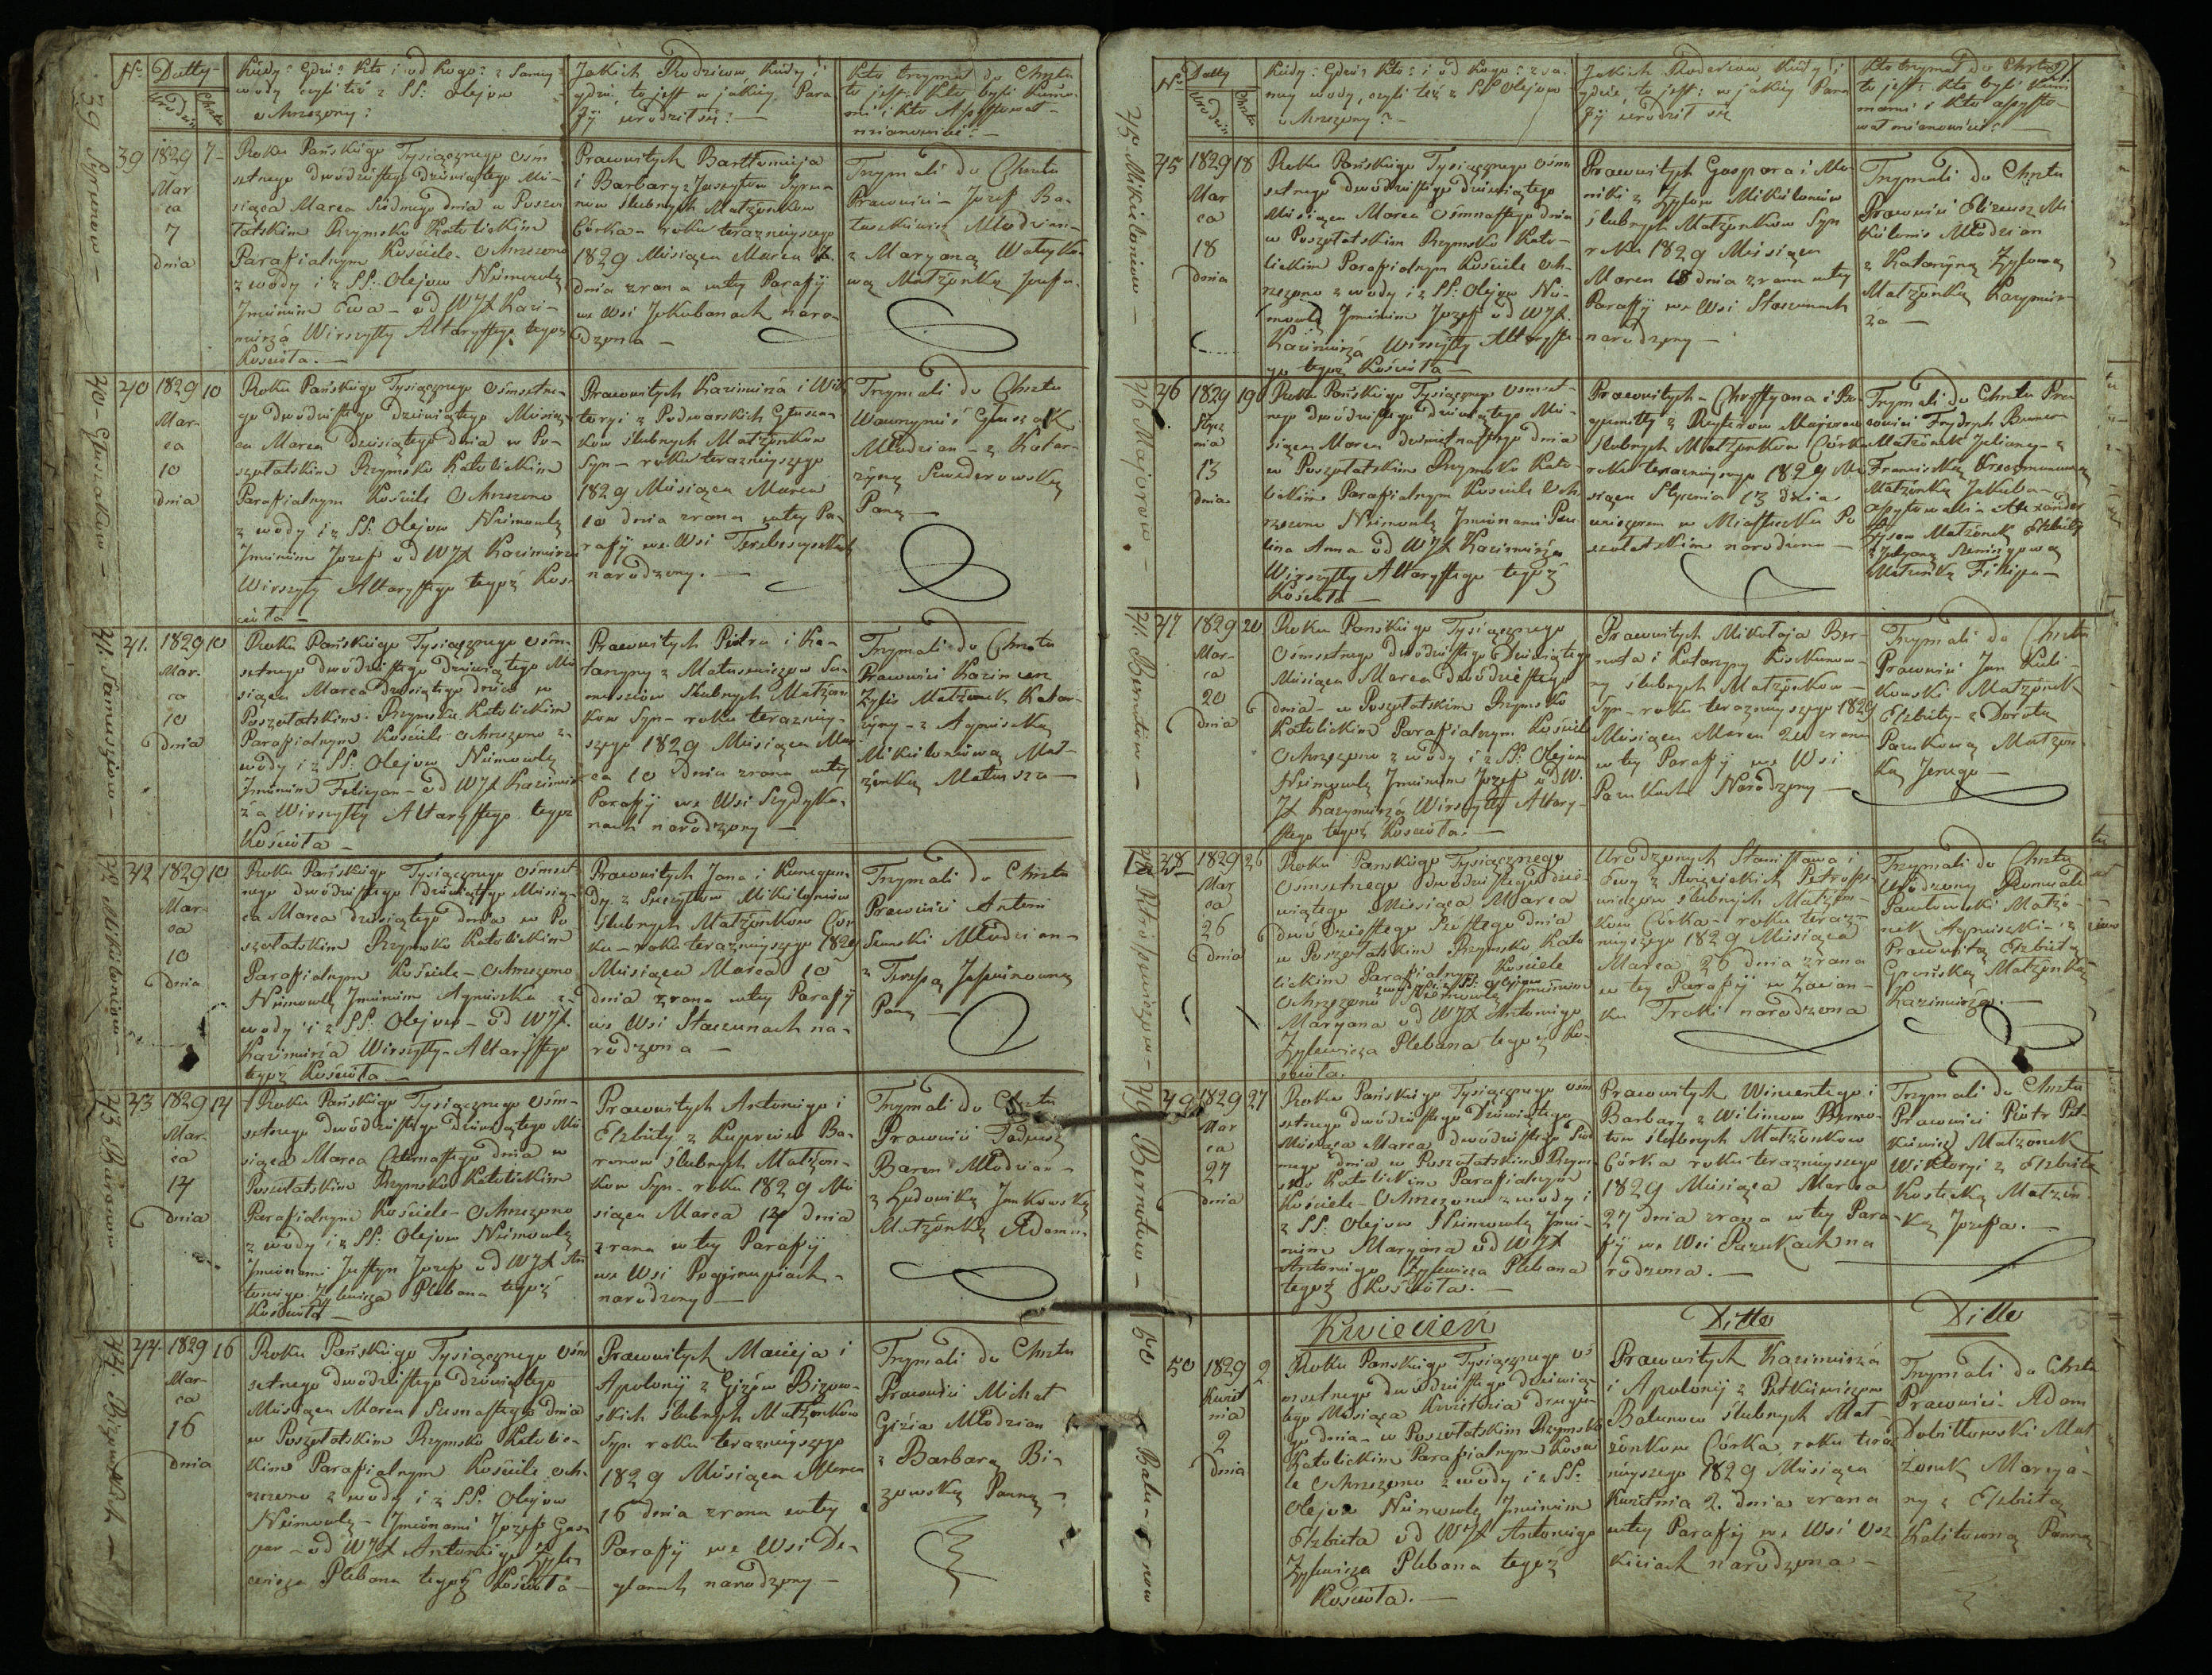 Nr.
Datty
Urodzin
Chrztu
Kiedy? Gdzie? Kto i od kogo? z samey
wody czyli też z SS: Olejow
ochrzczony?
Jakich Rodziców, kiedy i
gdzie, to jest w jakiey Para
fij urodził się? —
Kto trzymał do Chrztu
to jest: kto byli kumo-
mi i kto Assystował
mianowicie? —
39
1829
Mar
ca
7
dnia
7
Roku Pańskiego Tysiącznego Ośm
setnego dwódziestego dziewiątego Mie-
siąca Marca Siódmego dnia w Poszo
łatskim Rzymsko Katolickim
Parafialnym Kościele Ochrzczono
z wody i z SS: Olejow Niemowlę
Jmieniem Ewa — od WJX Kazi-
mierza Wirszyłły Altarystego tegoż
Kościoła. —
Prawowitych Bartłomieja
i Barbary z Juszytow Syre-
now ślubnych Małżonkow
Córka — roku teraznieyszego
1829 Miesiąca Marca 7.
dnia zrana wtey Parafij
we Wsi Jakubanach naro-
dzona —
Trzymali do Chrztu
Prawowici — Jozef Ba-
łuszkiewicz Młodzian —
z Maryaną
Małżonką Jozefa.
40
1829
Mar-
ca
10
dnia
10
Roku Pańskiego Tysiącznego Ośmsetne-
go dwódziestego dziewiątego Miesią-
ca Marca Dziesiątego dnia w Po-
szołatskim Rzymsko Katolickim
Parafialnym Kościele Ochrzczono
z wody i z SS: Olejow Niemowlę
Jmieniem Jozef od WJX Kazimierza
Wirszyły Altarystego tegoż Koś-
cioła —
Prawowitych Kazimierza i Wik
toryi z Podworskich Głusza-
kow ślubnych Małżonkow
Syn — roku teraznieyszego
1829 Miesiąca Marca
10 dnia zrana wtey Pa-
rafij we Wsi
narodzony. —
Trzymali do Chrztu
Wawrzyniec Głuszak
Młodzian — z Katar-
zyną
Panną —
41.
1829
Mar-
ca
10
dnia
10
Roku Pańskiego Tysiącznego ośm-
setnego dwódziestego dziewiątego Mie
siąca Marca dziesiątego dnia w
Poszołatskim Rzymsko Katolickim
Parafialnym Kościele Ochrzczono z
wody i z SS: Olejow Niemowlę
Jmieniem Felicyan — od WJX Kazimier
za Wirszyłły Altarystego tegoż
Kościoła —
Prawowitych Piotra i Ka-
tarzyny z Matusewiczow Sa-
museiow Slubnych Małżon
kow Syn — roku terazniey-
szego 1829 Miesiąca Mar-
ca 10 dnia zrana wtey
Parafij we Wsi Szydyszka-
nach narodzony —
Trzymali do Chrztu
Prawowici Kazimierz
Zylis Małżonek Katar-
zyny — z Agnieszką
Mikieloniową Mał-
żonką Mateusza —
42
1829
Mar-
ca
10
dnia
10
Roku Pańskiego Tysiącznego ośmset-
nego dwódziestego dziewiątego Miesią-
ca Marca dziesiątego dnia w Po
szołatskim Rzymsko Katolickim
Parafialnym Kościele — Ochrzczono
Niemowlę Jmieniem Agnieszka z
wody i z SS: Olejow — od WJX
Kazimierza Wirszyłły — Altarystego
tegoż Kościoła —
Prawowitych Jana i Kunegun-
dy z Mikielonow
Slubnych Małżonkow Cór
ka — roku teraznieyszego 1829
Miesiąca Marca 10
dnia zrana wtey Parafij
we Wsi Staszunach na-
rodzona —
Trzymali do Chrztu
Prawowici Antoni
Młodzian —
z Teressą
Panną —
43
1829
Mar-
ca
14
dnia
14
Roku Pańskiego Tysiącznego ośm-
setnego dwódziestego dziewiątego Mie
siąca Marca Czternastego dnia w
Poszołatskim Rzymsko Katolickim
Parafialnym Kościele — Ochrzczono
z wody i z SS: Olejow Niemowlę
Jmionami Justyn Jozef od WJX An
toniego Zylewicza Plebana tegoż
Kościoła —
Prawowitych Antoniego i
Elzbiety z Kuprewiow Ba-
ronow ślubnych Małżon-
kow Syn — roku 1829 Mie
siąca Marca 14 dnia
zrana wtey Parafij
we Wsi Pogirnupiach —
narodzony —
Trzymali do Chrztu
Prawowici Tadeusz
Baron Młodzian —
z Ludowiką Jankowską
Małżonką Adama
44.
1829
Mar-
ca
16
dnia
16
Roku Pańskiego Tysiącznego ośm
setnego dwódziestego dziewiątego
Miesiąca Marca Szesnastego dnia
w Poszołatskim Rzymsko Katolic-
kim Parafialnym Kościele och-
rzczono z wody i z SS: Olejow
Niemowlę — Jmionami Jozef Gas-
par — od WJX Antoniego Zyle-
wicza Plebana tegoż Kościoła —
Prawowitych Macieja i
Apolonij z Giziow Bizow-
skich ślubnych Małżonkow
Syn roku teraznieyszego
1829 Miesiąca Marca
16 dnia zrana wtey
Parafij we Wsi De-
glanach narodzony —
Trzymali do Chrztu
Prawowici Michał
Gizia Młodzian
z Barbarą Bi-
zowską Panną —
39 Syrenow —
40 — Głuszakow —
41
42 Mikieloniow —
43 Baronow —
44. Bizowskich —
Nr.
Datty
Urodzin
Chrztu
Kiedy? Gdzie? Kto? i od kogo? z sa-
mey wody, czyli też z SS Olejow
ochrzczony? —
Jakich Rodziców kiedy i
gdzie, to jest: w jakiey Para
fij urodził się
Kto trzymał do Chrztu?
to jest: kto byli kum
mami i kto assysto-
wał mianowicie? —
45
1829
Mar
ca
18
dnia
18
Roku Pańskiego Tysiącznego Ośm
setnego dwódziestego dziewiątego
Miesiąca Marca Ośmnastego dnia
w Poszołatskim Rzymsko Kato-
lickim Parafialnym Kościele och-
rzczono z wody i z SS: Olejow Nie-
mowlę Jmieniem Jozef od WJX.
Kazimierza Wirszyłły Altaryste
go tegoż Kościoła —
Prawowitych Gaspara i Mo-
niki z Zylow Mikieloniow
ślubnych Małżonkow Syn
roku 1829 Miesiąca
Marca 18 dnia zrana wtey
Parafij we Wsi Staszunach
narodzony —
Trzymali do Chrztu
Prawowici Elizeusz Mi
kielonis Młodzian
z Katarzyną Zylową
Małżonką Kazymier-
za —
46
1829
Stycz
nia
13
dnia
19
Roku Pańskiego Tysiącznego Osmset-
nego dwódziestego dziewiątego Mie-
siąca Marca dziewietnastego dnia
w Poszołatskim Rzymsko Kato-
lickim Parafialnym Kościele Och
rzczono Niemowlę Jmionami Pau
lina Anna od WJX Kazimierza
Wirszyłły Altarystego tegoż
Kościoła —
Prawowitych — Chrystyana i Bo
gumiłły z Reyterow Majorow
ślubnych Małżonkow Córka
roku teraznieyszego 1829 Mie
siąca Stycznia 13 dnia
wieczorem w Miasteczku Po
szołatskim narodzona —
Trzymali do Chrztu Pra
wowici Frydrych
Małżonek Julianny — z
Franciszką
Małżonką Jakuba —
assystowali — Alexander
Małżonek Elzbiety
z Julyaną
Małżonką Filipa —
47
1829
Mar-
ca
20
dnia
20
Roku Pańskiego Tysiącznego
Osmsetnego dwódziestego Dziewiątego
Miesiąca Marca dwódziestego
dnia — w Poszołatskim Rzymsko
Katolickim Parafialnym Kościele
Ochrzczono z wody i z SS: Olejow
Niemowlę Jmieniem Jozef od W.
JX Kazymierza Wirszyłły Altary-
stego tegoż Kościoła. —
Prawowitych Mikołaja Ber-
nota i Katarzyny
ślubnych Małżonkow —
Syn — roku teraznieyszego 1829
Miesiąca Marca 20 zrana
wtey Parafij we Wsi
Pazukach Narodzony —
Trzymali do Chrztu
Prawowici Jan Kuli-
kowski Małżonek
Elzbiety — z Dorotą
Pazukową Małżon-
ką Jerzego —
48
1829
Mar
ca
26
dnia
26
Roku Pańskiego Tysiącznego
Osmsetnego dwódziestego dzie-
wiątego Miesiąca Marca
dwódziestego Szóstego dnia
w Poszołatskim Rzymsko Kato
lickim Parafialnym Kościele
z wody i z SS: Olejow
Ochrzczono Niemowlę Jmieniem
Maryana od WJX Antoniego
Zylewicza Plebana tegoż Ko-
ścioła.
Urodzonych Stanisława i
Ewy z
ślubnych Małżon-
kow Córka — roku teraz-
nieyszego 1829 Miesiąca
Marca 26 dnia zrana
w tey Parafij w Zaścian-
ku Troki narodzona
Trzymali do Chrztu
Urodzony Romuald
Pawłowski Małżo-
nek Agnieszki — z
Prawowitą Elzbietą
Małżonką
Kazimierza. —
49
1829
Mar
ca
27
dnia
27
Roku Pańskiego Tysiącznego ośm
setnego dwódziestego Dziewiątego
Miesiąca Marca dwódziestego Siód
mego dnia w Poszołatskim Rzym-
sko Katolickim Parafialnym
Kościele — Ochrzczono z wody i
z SS: Olejow Niemowlę Jmie-
niem Maryana od WJX
Antoniego Zylewicza Plebana
tegoż Kościoła. —
Prawowitych Wincentego i
Barbary z Wilimow Berno-
tow ślubnych Małżonkow
Córka roku teraznieyszego
1829 Miesiąca Marca
27 dnia zrana wtey Para-
fij we Wsi Pazukach na
rodzona. —
Trzymali do Chrztu
Prawowici Piotr Pet-
kiewicz Małżonek
Wiktoryi z Elzbietą
Kostecką Małżon-
ką Jozefa. —
Kwiecień
Ditto
Ditto
50
1829
Kwiet
nia
2
dnia
2
Roku Panskiego Tysiącznego oś
msetnego dwódziestego dziewią-
tego Miesiąca Kwietnia drugie-
go dnia — w Poszołatskim Rzymsko
Katolickim Parafialnym Koście
le Ochrzczono z wody i z SS:
Olejow Niemowlę Jmieniem
Elzbieta od WJX Antoniego
Zylewicza Plebana tegoż
Kościoła. —
Prawowitych Kazimierza
i Apolonij z Petkiewiczow
Balunow ślubnych Mał-
żonkow Córka roku teraz
nieyszego 1829 Miesiąca
Kwietnia 2. dnia zrana
wtey Parafij we Wsi
narodzona —
Trzymali do Chrztu
Prawowici — Adam
Dobitkowski Mał
żonek Maryja-
ny z Elzbietą
Panną
45 Mikieloniow —
46 Majorow —
47. Bernotow —
48
49 Bernotow —
50 Balu-now